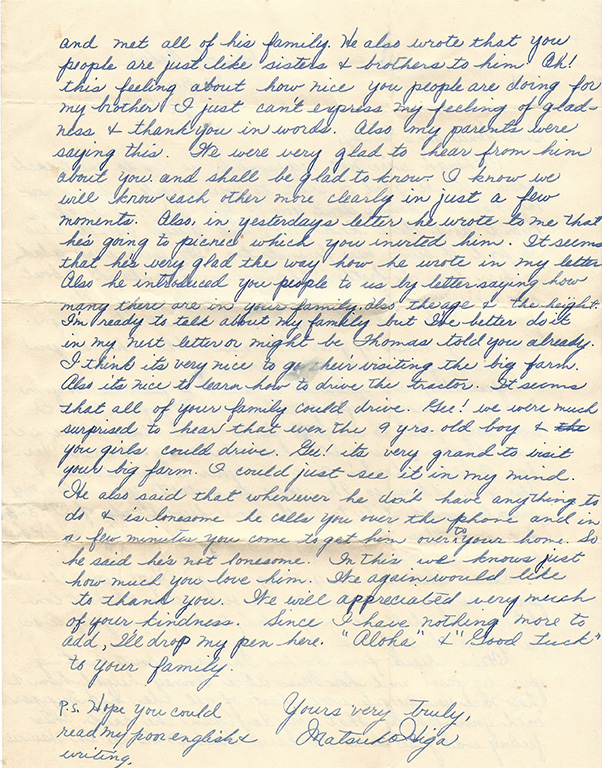 and met all of his family. He also wrote that you
people are just like sisters & brothers to him Ah!
this feeling about how nice you people are doing for
my brother I just can't express my feeling of glad-
ness & thank you in words. Also my parents were
saying this. We were very glad to hear from him
about you and shall be glad to know. I know we
will know each other more clearly in just a few
moments. Also, in yesterdays letter he wrote to me that
he's going to picnic which you invited him. It seems
that he's very glad the way how he wrote in my letter
Also he introduced you people to us by letter saying how
many there are in your family, also the age & the height.
I'm ready to talk about my family but I've better do it
in my next letter or might be Thomas told you already.
I think its very nice to go their visiting the big farm.
Also its nice to learn how to drive the tractor. It seems
that all of your family could drive. Gee! we were much
surprised to hear that even the 9 yrs. old boy & the
you girls could drive. Gee! its very grand to visit
your big farm. I could just see it in my mind.
He also said that whenever he don't have anything to
do & is lonesome he calls you over the phone and in
a few minutes you come to get him over to your home. So
he said he's not lonesome. In this we knows just
how much you love him. We again would like
to thank you. We will appreciated very much
of your kindness. Since I have nothing more to
add, I'll drop my pen here. "Aloha" & "Good Luck"
to your family.
Yours very truly,
Matsuko Higa
P.S. Hope you could
read my poor english &
writing.